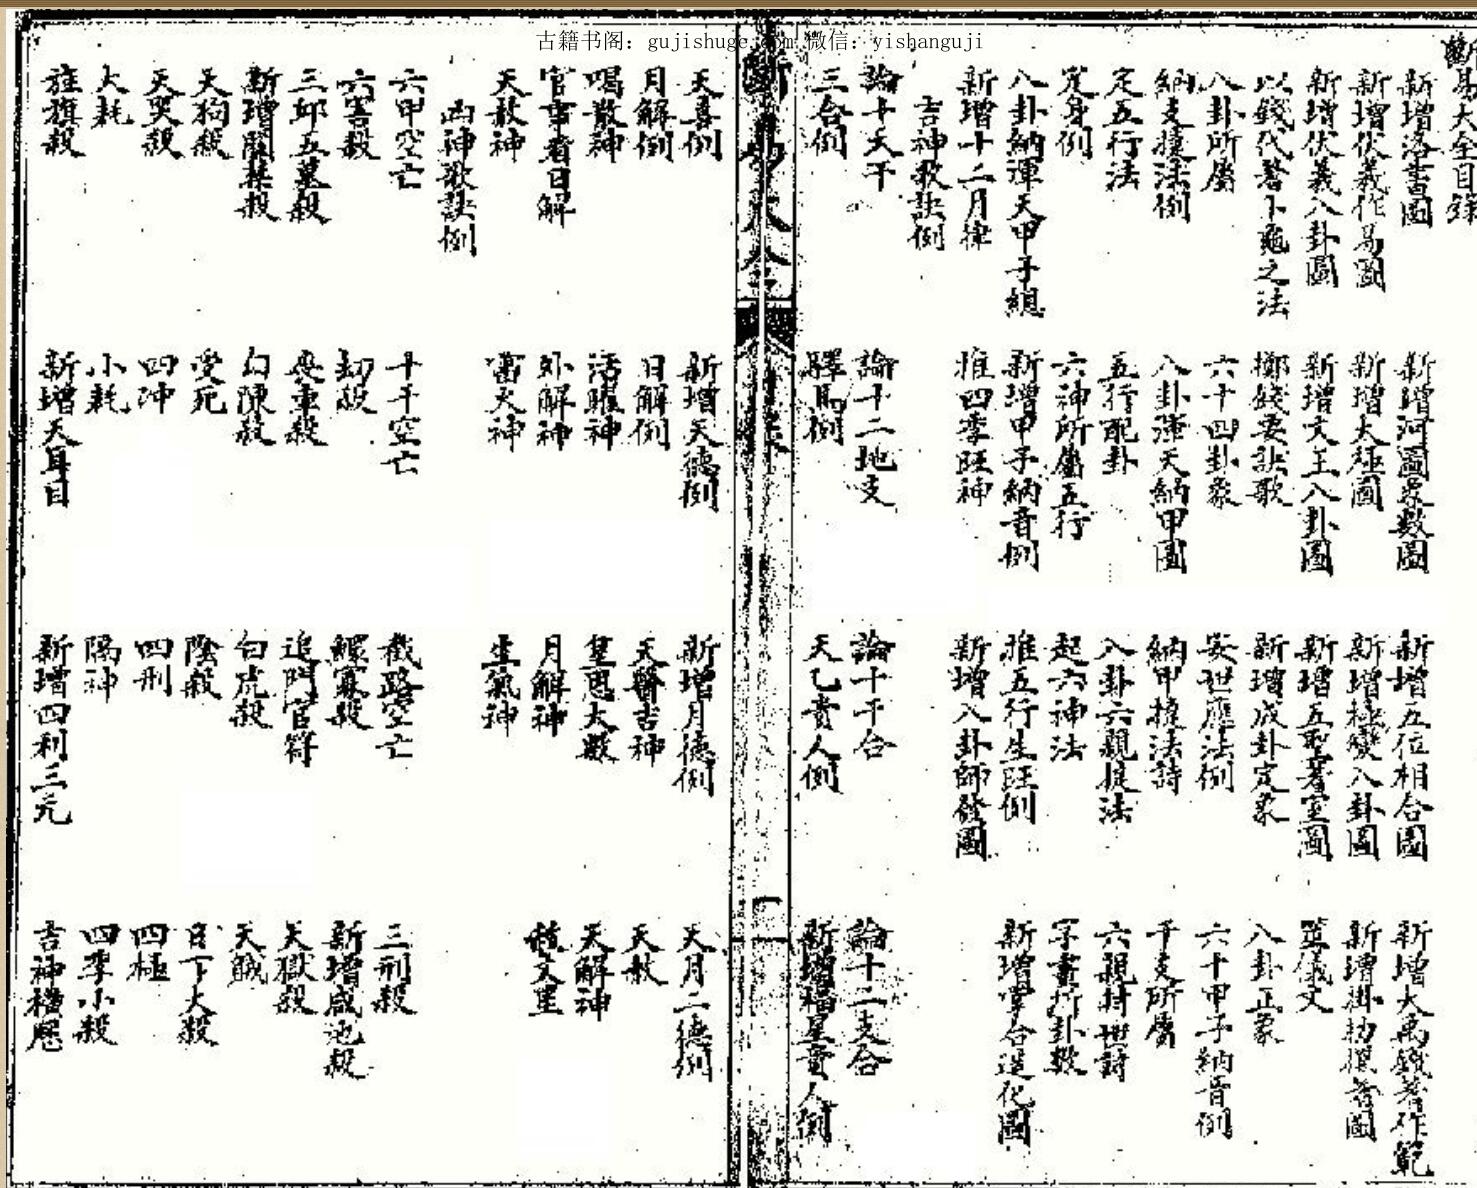 古籍书阁：gujishuge.com 微信：yishanguji
斷易大全目錄
新增洛書圖 新增河圖象數圖 新增五位相合圖 新增大禹錢蓍作範
新增伏羲作易圖 新增太極圖 新增極變八卦圖 新增掛扐揲蓍圖
新增伏羲八卦圖 新增文王八卦圖 新增五聖蓍室圖 筮儀文
以錢代蓍卜龜之法 擲錢要訣歌 新增成卦定象 八卦正象
八卦所屬 六十四卦象 安世應法例 六十甲子納音例
納支換法例 八卦渾天納甲圖 納甲換法詩 干支所屬
定五行法 五行配卦 八卦六親換法 六親持世詩
定身例 六神所屬五行 起六神法 字畫折卦數
八卦納渾天甲子總 新增甲子納音例 推五行生旺例 新增掌合造化圖
新增十二月律 推四季旺神 新增八卦師發圖
吉神歌訣例
論十天干 論十二地支 論十干合 論十二支合
三合例 驛馬例 天乙貴人例 新增福星貴人例
斷易大全 目錄 一
天喜例 新增天德例 新增月德例 天月二德例
月解例 日解例 天醫吉神 天赦
喝散神 活曜神 皇恩大赦 天解神
官事看日解 外解神 月解神 文星
天赦神 雷火神 生氣神
凶神歌訣例
六甲空亡 十干空亡 截路空亡 三刑殺
六害殺 劫殺 鰥寡殺 新增咸池殺
三邱五墓殺 喪車殺 追門官符 天獄殺
新增關隔殺 勾陳殺 白虎殺 天賊
天狗殺 受死 陰殺 日下大殺
天哭殺 四沖 四刑 四極
大耗 小耗 隔神 四季小殺
旌旗殺 新增天耳目 新增四利三元 吉神橫歷